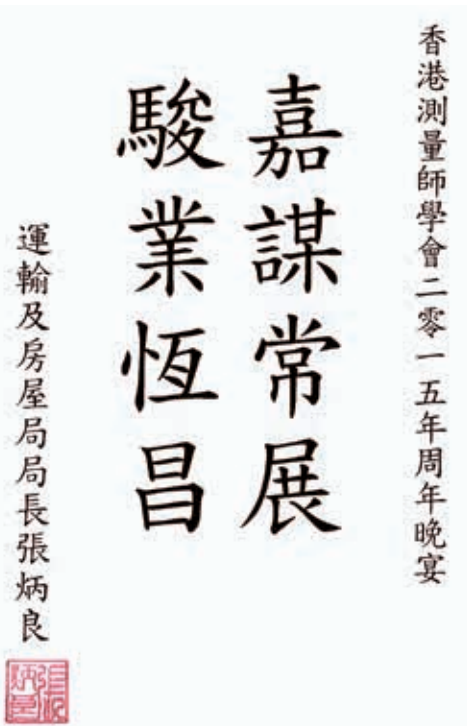 香港測量師學會二零一五年周年晚宴
嘉謀常展
駿業恆昌
運輸及房屋局局長張炳良
張炳良